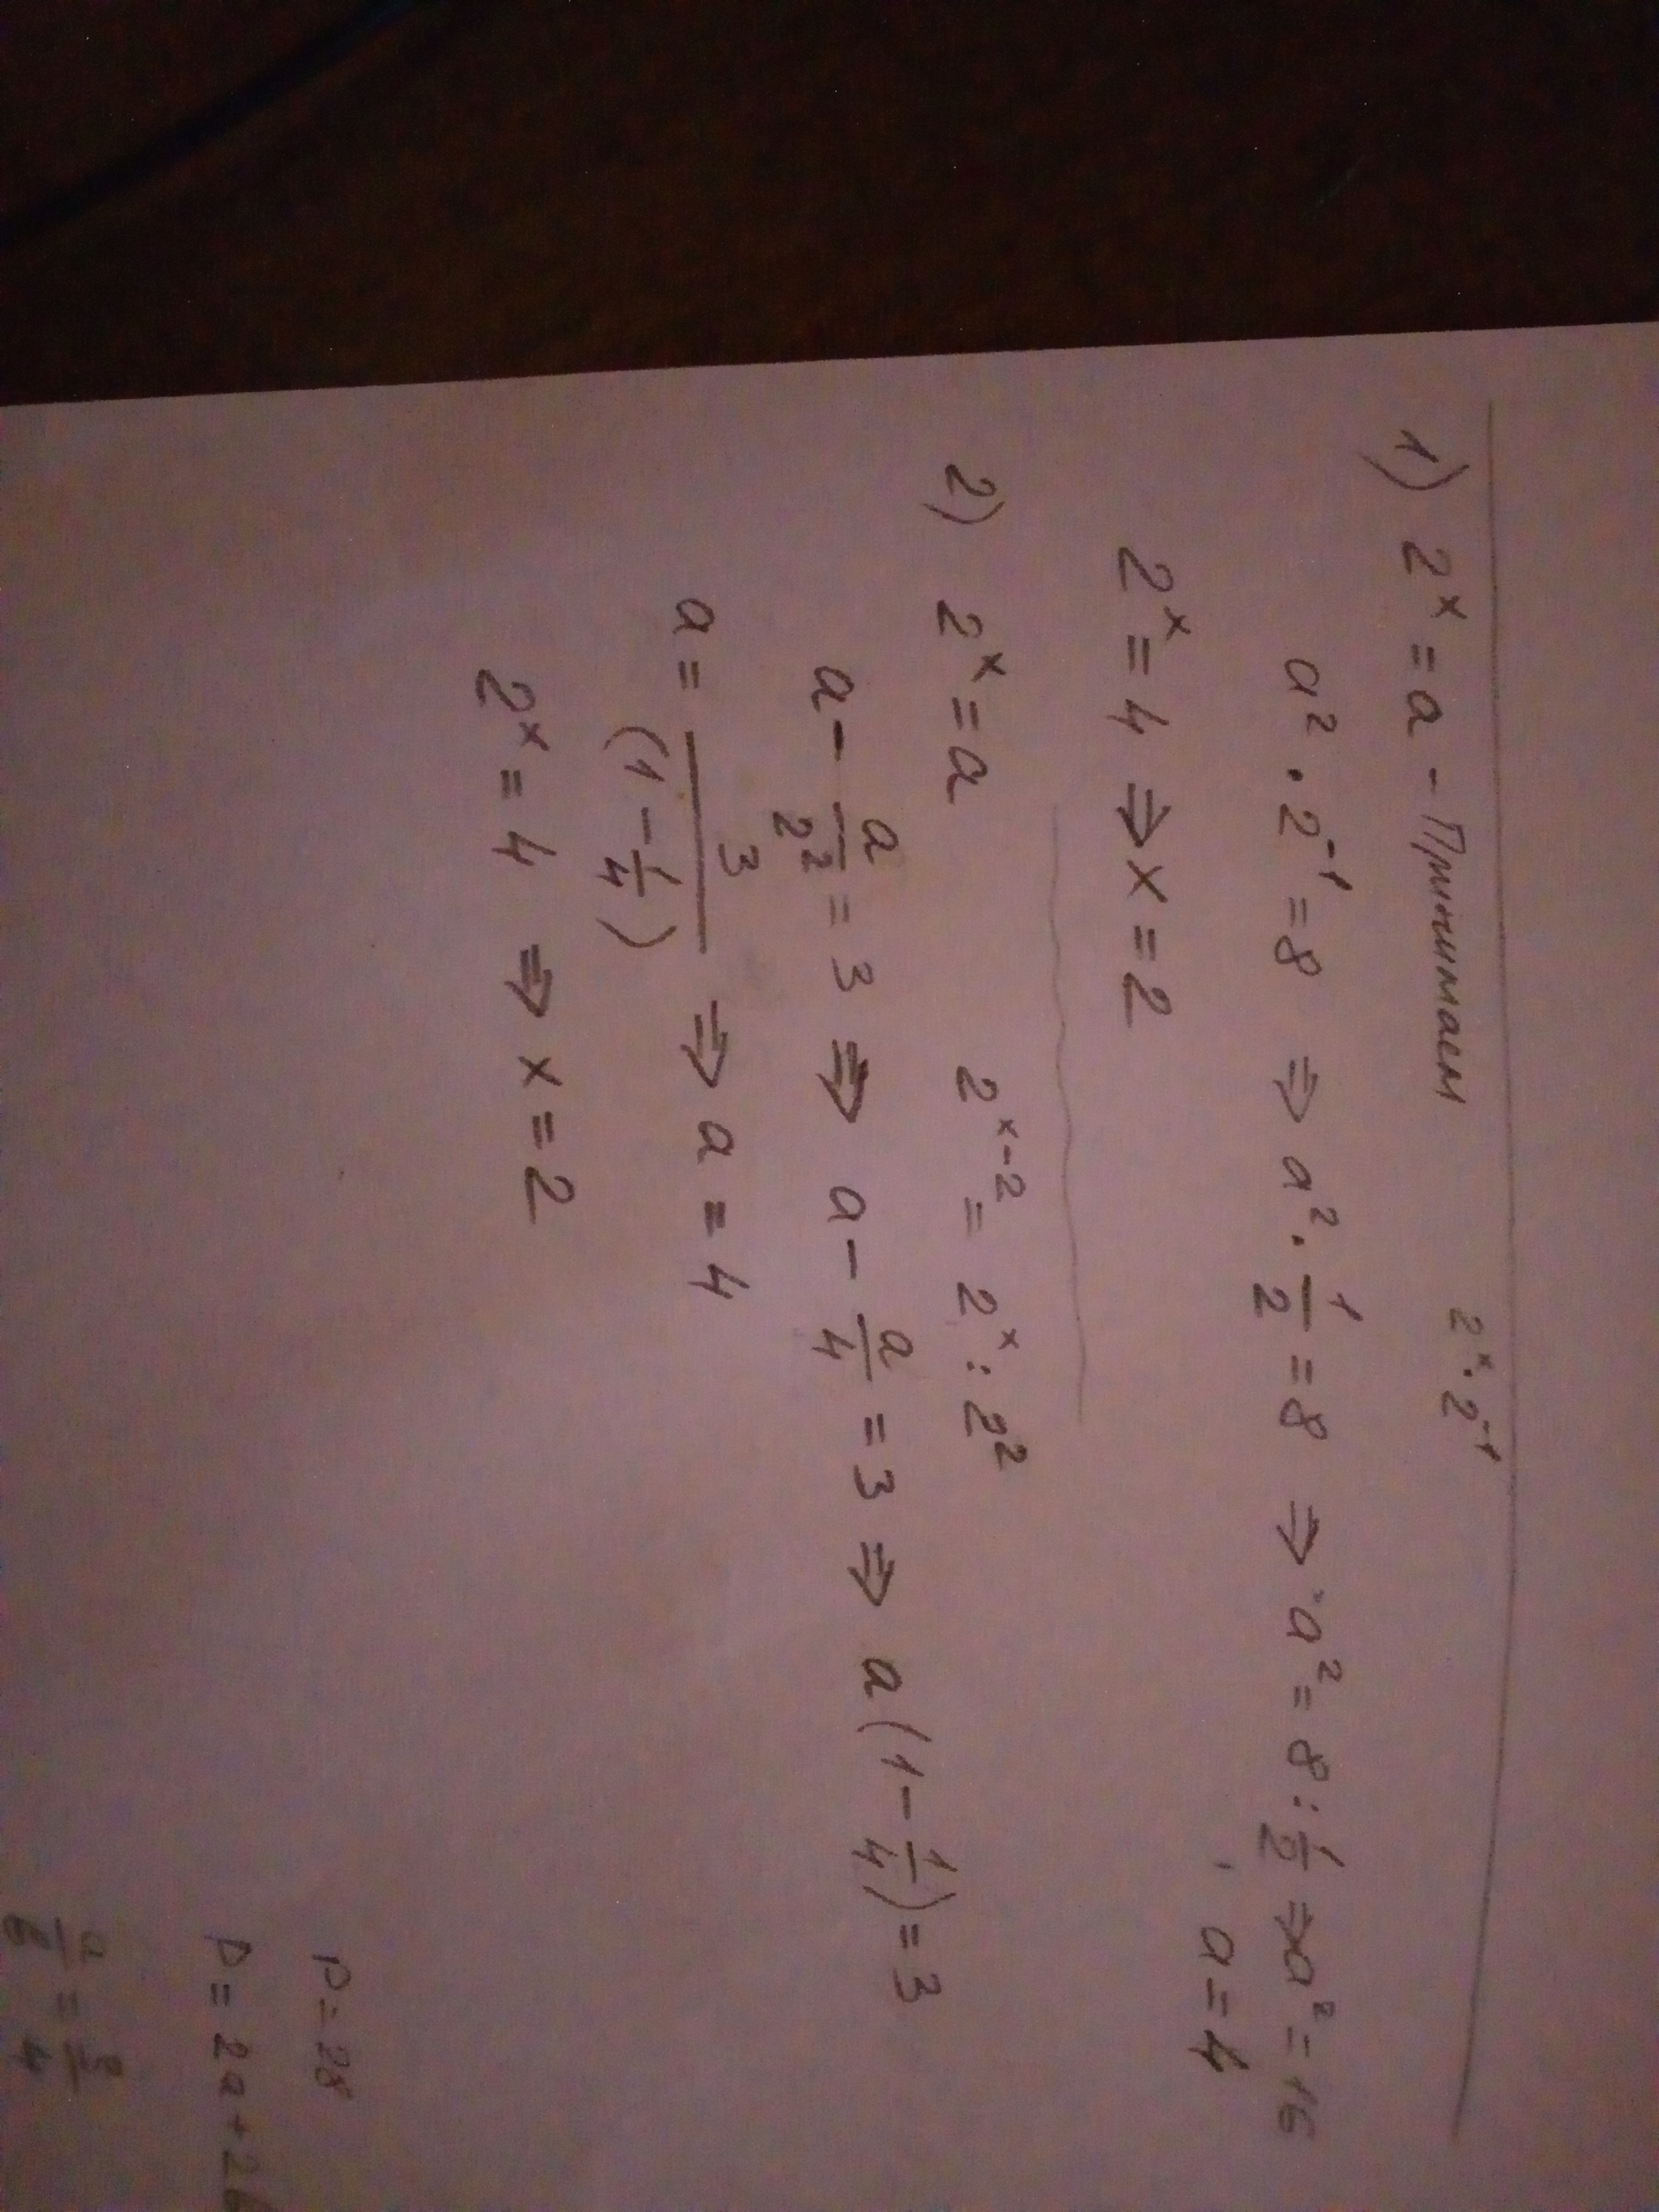 2ˣ · 2⁻¹
1) 2ˣ = a - Принимаем
a² · 2⁻¹ = 8 ⇒ a² · 1/2 = 8 ⇒ a² = 8 : 1/2 ⇒ a² = 16
a = 4
2ˣ = 4 ⇒ x = 2
2) 2ˣ = a 2ˣ⁻² = 2ˣ : 2²
a - a/2² = 3 ⇒ a - a/4 = 3 ⇒ a(1 - 1/4) = 3
a = 3/(1 - 1/4) ⇒ a = 4
2ˣ = 4 ⇒ x = 2
P = 28
P = 2a + 2b